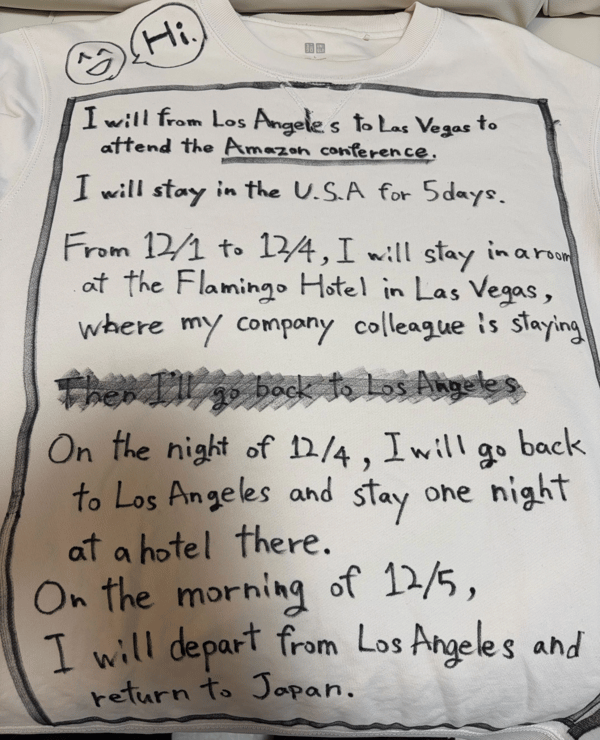 Hi.
I will from Los Angeles to Las Vegas to
attend the Amazon conference.
I will stay in the U.S.A for 5days.
From 12/1 to 12/4, I will stay in a room
at the Flamingo Hotel in Las Vegas,
where my company colleague is staying
Then I'll go back to Los Angeles
On the night of 12/4, I will go back
to Los Angeles and stay one night
at a hotel there.
On the morning of 12/5,
I will depart from Los Angeles and
return to Japan.